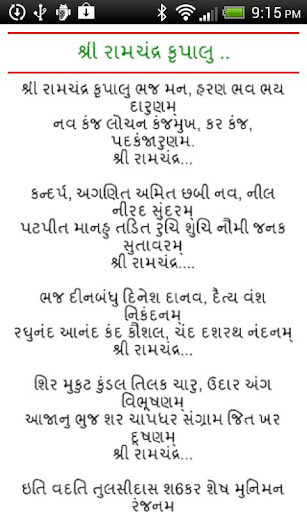 9:15 PM
શ્રી રામચંદ્ર કૃપાલુ ..
શ્રી રામચંદ્ર કૃપાલુ ભજ મન, હરણ ભવ ભય
દારુણમ્
નવ કંજ લોચન કંજમુખ, કર કંજ,
પદકંજારુણમ.
શ્રી રામચંદ્ર...
કન્દર્પ, અગણિત અમિત છબી નવ, નીલ
નીરદ સુંદરમ્
પટપીત માનહુ તડિત રુચિ શુંચિ નૌમી જનક
સુતાવરમ્
શ્રી રામચંદ્ર....
ભજ દીનબંધુ દિનેશ દાનવ, દૈત્ય વંશ
નિકંદનમ્
રઘુનંદ આનંદ કંદ કૌશલ, ચંદ દશરથ નંદનમ્
શ્રી રામચંદ્ર...
શિર મુકુટ કુંડલ તિલક ચારુ, ઉદાર અંગ
વિભૂષણમ્
આજાનુ ભુજ શર ચાપધર સંગ્રામ જિત ખર
દૂષણમ્
શ્રી રામચંદ્ર...
ઇતિ વદતિ તુલસીદાસ શ6કર શેષ મુનિમન
રંજનમ